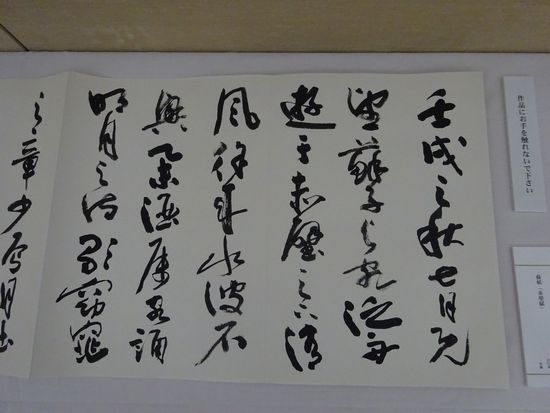 壬戌之秋七月既
望蘇子与客泛舟
遊于赤壁之下清
風徐来水波不
興挙酒属客誦
明月之詩歌窈窕
之章少焉月出
作品にお手を触れないで下さい
蘇軾「赤壁賦」